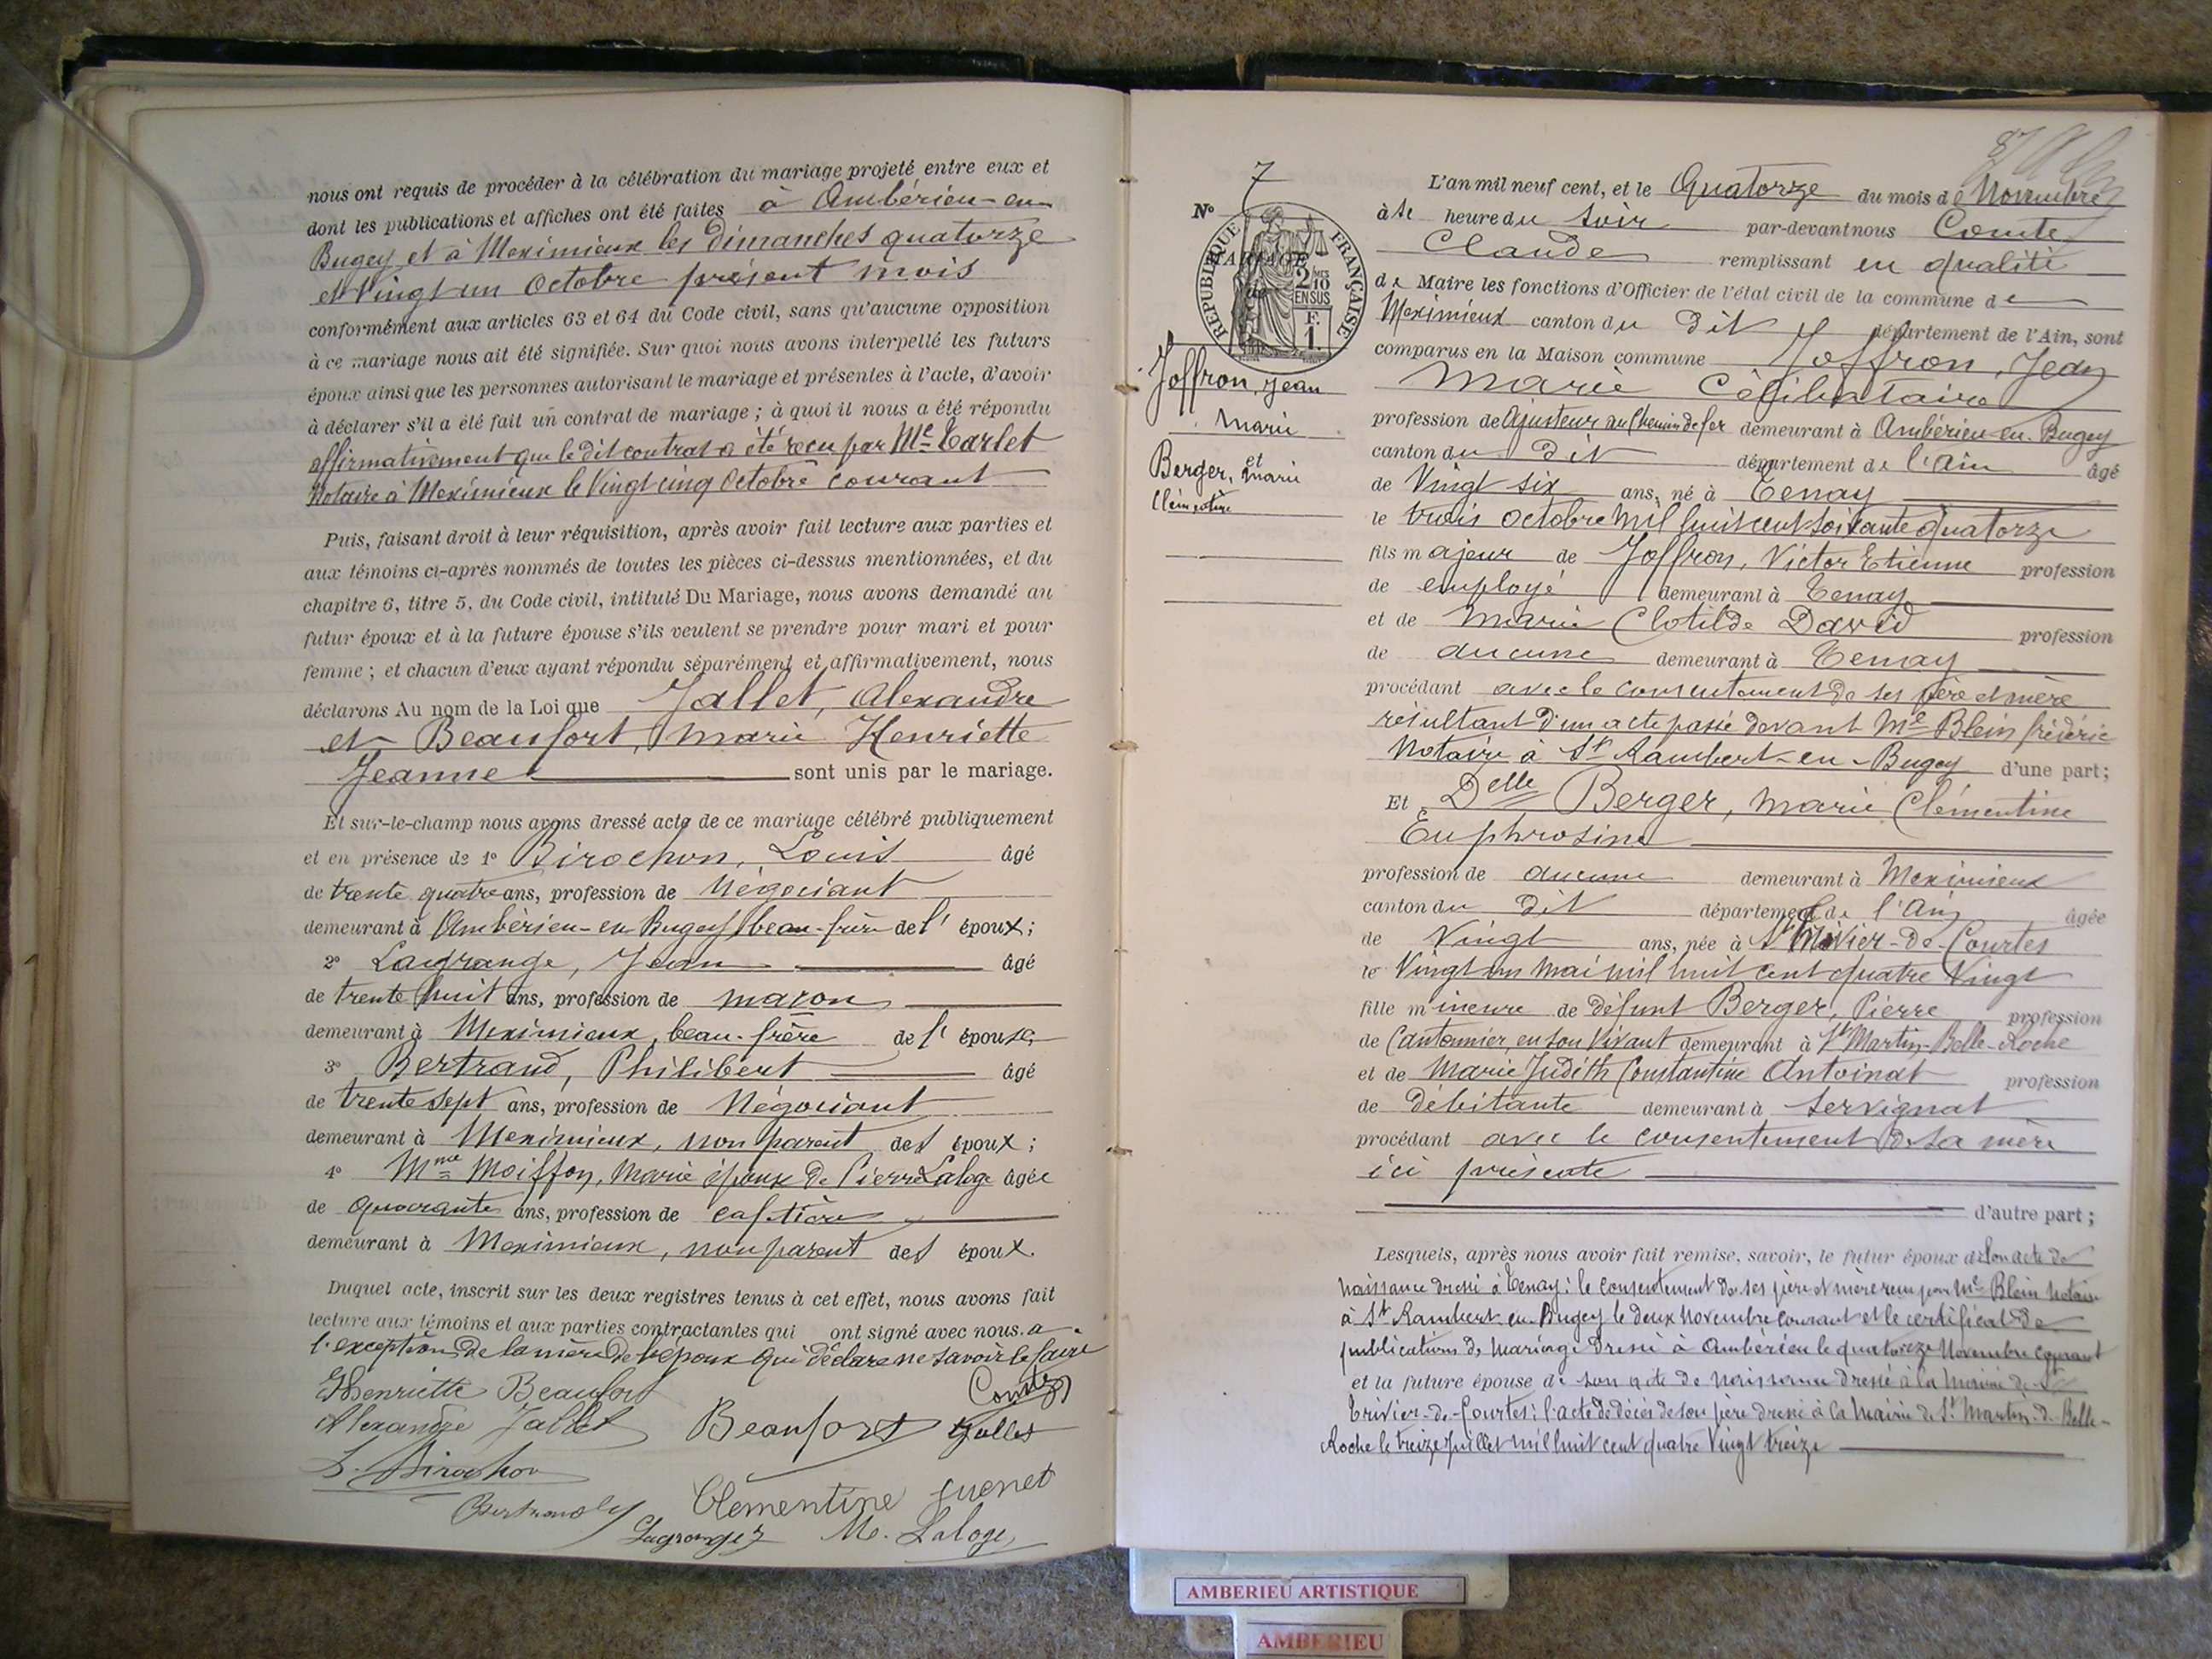 nous ont requis de procéder à la célébration du mariage projeté entre eux et
dont les publications et affiches ont été faites à Ambérieu-en-
Bugey et à Meximieux les dimanches quatorze
et vingt un Octobre présent mois
conformément aux articles 63 et 64 du Code civil, sans qu'aucune opposition
à ce mariage nous ait été signifiée. Sur quoi nous avons interpellé les futurs
époux ainsi que les personnes autorisant le mariage et présentes à l'acte, d'avoir
à déclarer s'il a été fait un contrat de mariage ; à quoi il nous a été répondu
affirmativement que le dit contrat a été reçu par Me Tarlet
Notaire à Meximieux le vingt cinq Octobre courant
Puis, faisant droit à leur réquisition, après avoir fait lecture aux parties et
aux témoins ci-après nommés de toutes les pièces ci-dessus mentionnées, et du
chapitre 6, titre 5, du Code civil, intitulé Du Mariage, nous avons demandé au
futur époux et à la future épouse s'ils veulent se prendre pour mari et pour
femme ; et chacun d'eux ayant répondu séparément et affirmativement, nous
déclarons Au nom de la Loi que Jallet, Alexandre
et Beaufort, Marie Henriette
Jeanne sont unis par le mariage.
Et sur-le-champ nous avons dressé acte de ce mariage célébré publiquement
et en présence de 1° Birochon, Louis âgé
de trente quatre ans, profession de Négociant
demeurant à Ambérieu-en Bugey beau-frère de l' époux ;
2° Lagrange, Jean âgé
de trente huit ans, profession de maçon
demeurant à Meximieux, beau-frère de l' épouse,
3° Bertrand, Philibert âgé
de trente sept ans, profession de Négociant
demeurant à Meximieux, non parent des époux ;
4° Mme Moiffon, Marie épouse de Pierre Laloge âgée
de quarante ans, profession de cafetière
demeurant à Meximieux, non parent des époux.
Duquel acte, inscrit sur les deux registres tenus à cet effet, nous avons fait
lecture aux témoins et aux parties contractantes qui ont signé avec nous. a
l'exception de la mère de l'époux qui déclare ne savoir le faire
Henriette Beaufort Comte
Alexandre Jallet Beaufort Jallet
L. Birochon
Clémentine guenet
Bertrand Lagrange M. Laloge
87
N° 7
RÉPUBLIQUE FRANÇAISE
MARIAGE
2/10 EN SUS
F. 1.
Joffron, Jean
Marie
et
Berger, Marie
Clémentine
L'an mil neuf cent, et le Quatorze du mois de Novembre
à heure du soir par-devant nous Comte
Claude remplissant en qualité
de Maire les fonctions d'Officier de l'état civil de la commune de
Meximieux canton du dit département de l'Ain, sont
comparus en la Maison commune Joffron, Jean
Marie Célibataire
profession de Ajusteur au Chemin de fer demeurant à Ambérieu-en-Bugey
canton du dit département de l'Ain âgé
de Vingt six ans, né à Tenay
le trois Octobre mil huit cent soixante quatorze
fils majeur de Joffron, Victor Etienne profession
de employé demeurant à Tenay
et de Marie Clotilde David profession
de aucune demeurant à Tenay
procédant avec le consentement de ses père et mère
résultant d'un acte passé devant Me Blein frédéric
Notaire à St Rambert-en-Bugey d'une part ;
Et Delle Berger, Marie Clémentine
Euphrosine
profession de aucune demeurant à Meximieux
canton du dit département de l'Ain âgée
de Vingt ans, née à St Trivier-de-Courtes
le Vingt un Mai mil huit cent quatre Vingt
fille mineure de défunt Berger, Pierre profession
de Cantonnier, en son vivant demeurant à St Martin-Belle-Roche
et de Marie Judith Constantine Antoinat profession
de débitante demeurant à Servignat
procédant avec le consentement de sa mère
ici présente
d'autre part ;
Lesquels, après nous avoir fait remise, savoir, le futur époux de son acte de
naissance dressé à Tenay : le consentement de ses père et mère reçu par Me Blein Notaire
à St Rambert en Bugey le deux Novembre courant et le certificat de
publications de Mariage dressé à Ambérieu le quatorze Novembre courant
et la future épouse de son acte de naissance dressé à la Mairie de St
Trivier-de-Courtes : l'acte de décès de son père dressé à la Mairie de St Martin-d-Belle-
Roche le treize Juillet mil huit cent quatre Vingt treize
AMBERIEU ARTISTIQUE
AMBERIEU